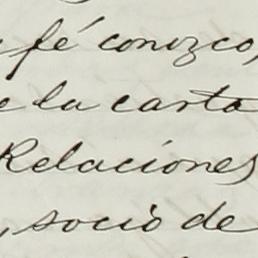 fé conozco,
e la carta
Relaciones
, socio de